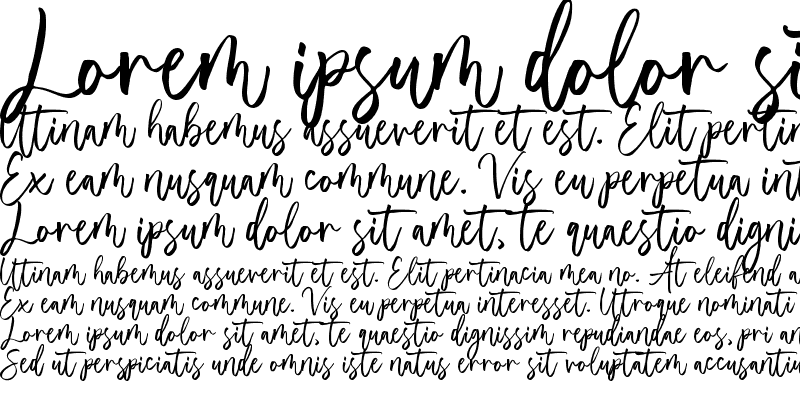 Lorem ipsum dolor si
Uttinam habemus assueverit et est. Elit pertin
Ex eam nusquam commune. Vis eu perpetua int
Lorem ipsum dolor sit amet, te quaestio digni
Uttinam habemus assueverit et est. Elit pertinacia mea no. At eleifend a
Ex eam nusquam commune. Vis eu perpetua interesset. Uttroque nominati
Lorem ipsum dolor sit amet, te quaestio dignissim repudiandae eos, pri an
Sed ut perspiciatis unde omnis iste natus error sit voluptatem accusantiu